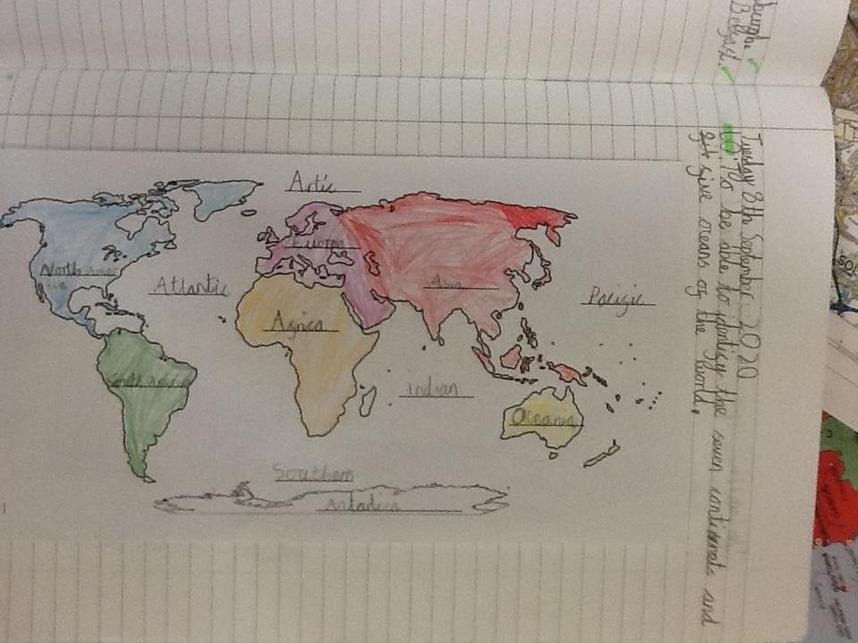 burgh.
Belfast.
Tuesday 8th September 2020
LO: To be able to identify the seven continents and
five oceans of the world.
Artic
Europe
North Amer
ica
Atlantic
Asia
Pacific
Africa
South America
Indian
Oceania
Southern
Antartica